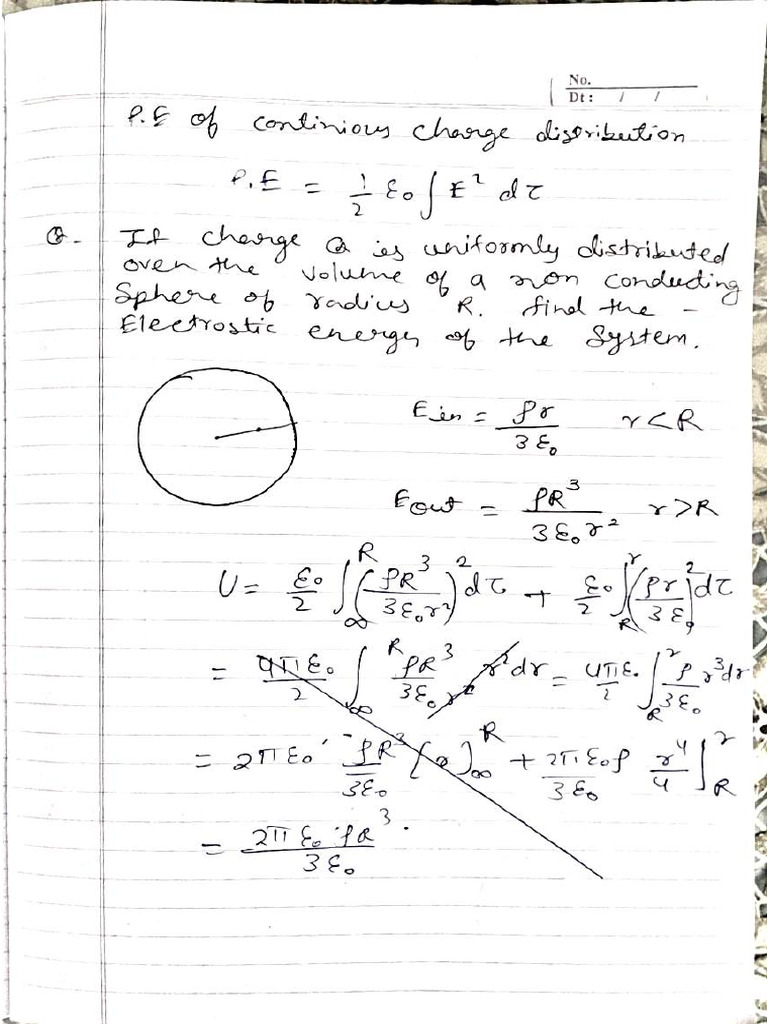 No.
Dt: / /
P.E of continious charge distribution
P.E = 1/2 ε₀ ∫ E² dτ
Q. If charge Q is uniformly distributed
over the volume of a non conducting
Sphere of radius R. find the -
Electrostic energy of the System.
E in = ρr / 3ε₀ r < R
Eout = ρR³ / 3ε₀r² r > R
U = ε₀/2 ∫_∞^R (ρR³ / 3ε₀r²)² dτ + ε₀/2 ∫_R^r (ρr / 3ε₀)² dτ
= 4πε₀/2 ∫_∞^R ρR³ / 3ε₀r² r² dr = 4πε₀/2 ∫_R^r ρ / 3ε₀ r³ dr
= 2πε₀ · ρR³ / 3ε₀ [r]_∞^R + 2πε₀ρ / 3ε₀ r⁴/4 |_R^r
= 2πε₀ ρR³ / 3ε₀ .